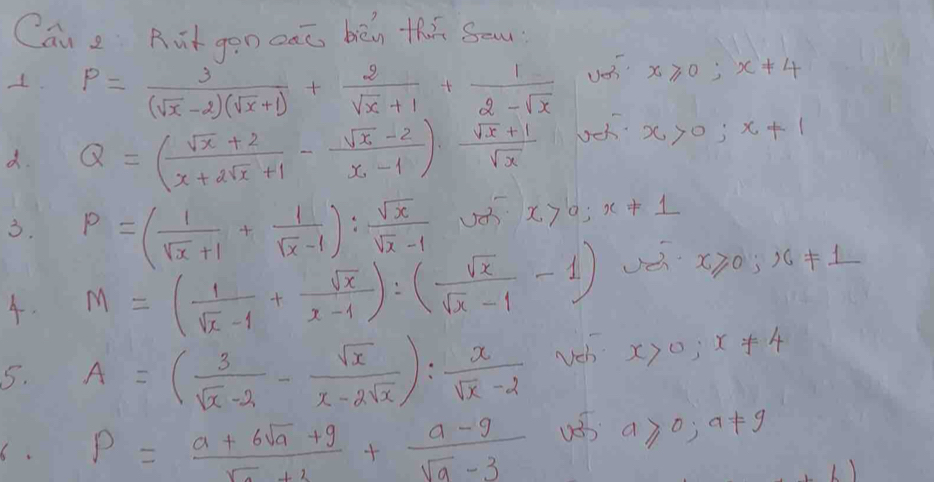 Câu 2: Rút gọn các biểu thức sau:
1. P = 3/((√x - 2)(√x + 1)) + 2/(√x + 1) + 1/(2 - √x) với x ≥ 0; x ≠ 4
2. Q = ((√x + 2)/(x + 2√x + 1) - (√x - 2)/(x - 1)) . (√x + 1)/√x với x > 0; x ≠ 1
3. P = (1/(√x + 1) + 1/(√x - 1)) : √x/(√x - 1) với x > 0; x ≠ 1
4. M = (1/(√x - 1) + √x/(x - 1)) : (√x/(√x - 1) - 1) với x ≥ 0; x ≠ 1
5. A = (3/(√x - 2) - √x/(x - 2√x)) : x/(√x - 2) với x > 0; x ≠ 4
6. P = (a + 6√a + 9)/(√a + 3) + (a - 9)/(√a - 3) với a ≥ 0; a ≠ 9